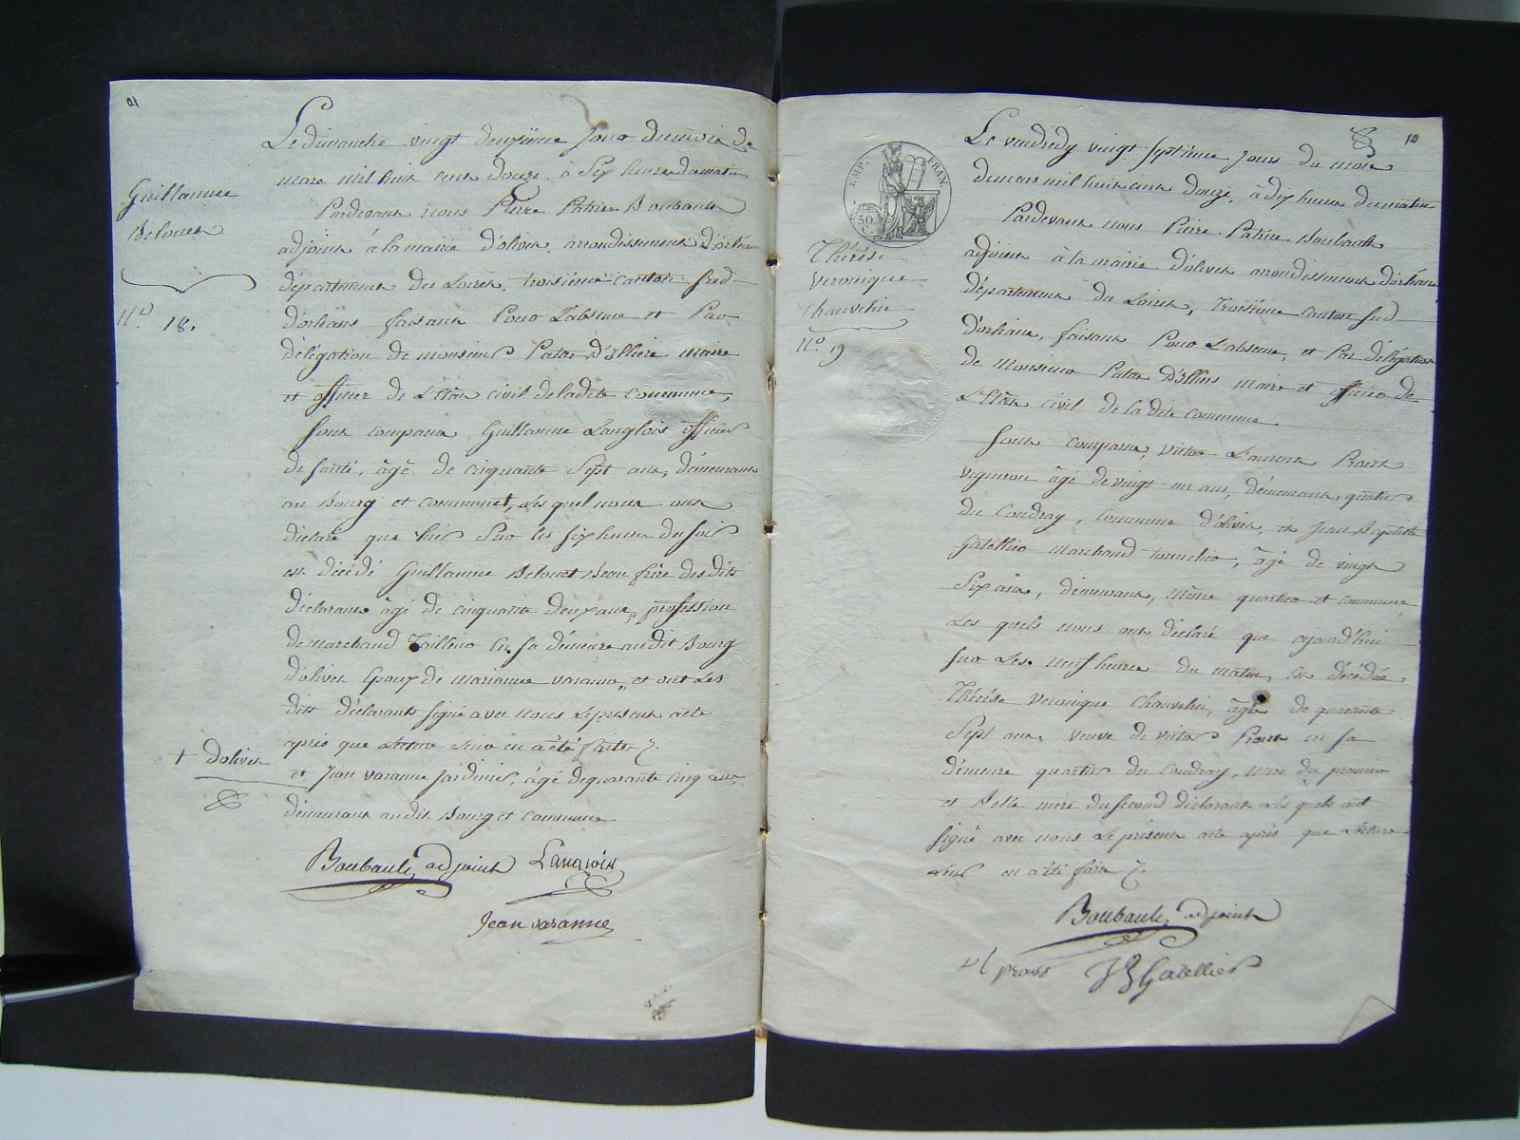 Guillaume
Belouet
N.º 18.
Le dimanche vingt deuxieme jour du mois de
mars mil huit cent douze à six heures du matin
Pardevant nous Pierre Patrice Boubault
adjoint à la mairie d'olivet arrondissement d'orléans
département du Loiret, troisieme canton sud
d'orléans faisant pour l'absence et par
délégation de monsieur Patas d'illiers maire
et officier de l'état civil de la dite commune,
sont comparus Guillaume Langlois officier
de santé, âgé de cinquante sept ans, démeurant
au bourg et commune +, les quels nous ont
déclaré que hier sur les six heures du soir
est décédé Guillaume Belouet beau frère des dits
déclarants âgé de cinquante deux ans, profession
de marchand Tailleur en sa démeure au dit bourg
d'olivet Epoux de marianne varanne, et ont les
dits déclarants signé avec nous le présent acte
après que lecture leur en a été faite ./.
+ d'olivet
et Jean varanne jardinier, âgé de quarante cinq ans,
démeurant au dit bourg et commune
Boubault adjoint Langlois
Jean varanne
10
EMP. FRAN.
50
Thérèse
Veronique
Chauvelin
N.º 19
Le vendrédy vingt septieme jour du mois
de mars mil huit cent douze, à dix heures du matin
Pardevant nous Pierre Patrice Boubault
adjoint à la mairie d'olivet arrondissement d'orléans
département du Loiret, troisieme canton sud
d'orléans, faisant pour l'absence, et par délégation
de monsieur Patas d'illiers maire et officier de
l'état civil de la dite commune
sont comparus, victor Laurent Proust
vigneron âgé de vingt un ans, démeurant quartier
du Coudray, commune d'olivet, et jean Baptiste
Gatellier marchand tonnelier, âgé de vingt
six ans, démeurant, même quartier et commune
les quels nous ont déclaré que aujourd'hui
sur les neuf heures du matin, est décédée
Thérèse Veronique Chauvelin, âgée de quarante
sept ans, veuve de victor Proust en sa
démeure quartier du Coudray, mere du premier
et Belle mère du second déclarant les quels ont
signé avec nous le présent acte après que lecture
leur en a été faite ./.
Boubault adjoint
vl proust JB Gatellier